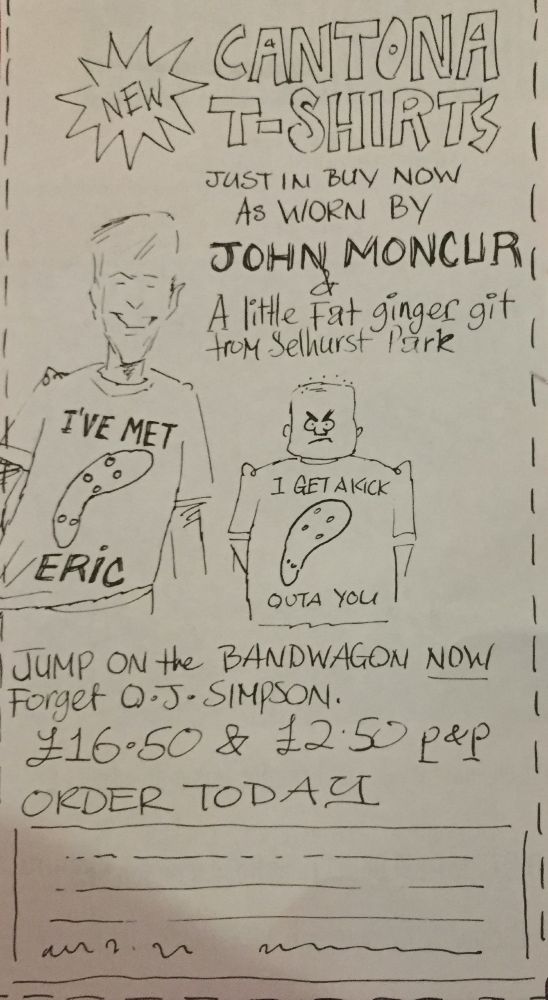 NEW
CANTONA
T-SHIRTS
JUST IN BUY NOW
AS WORN BY
JOHN MONCUR
&
A little Fat ginger git
from Selhurst Park
I'VE MET
ERIC
I GET A KICK
OUTA YOU
JUMP ON the BANDWAGON NOW
Forget O.J. SIMPSON.
£16.50 & £2.50 p&p
ORDER TODAY